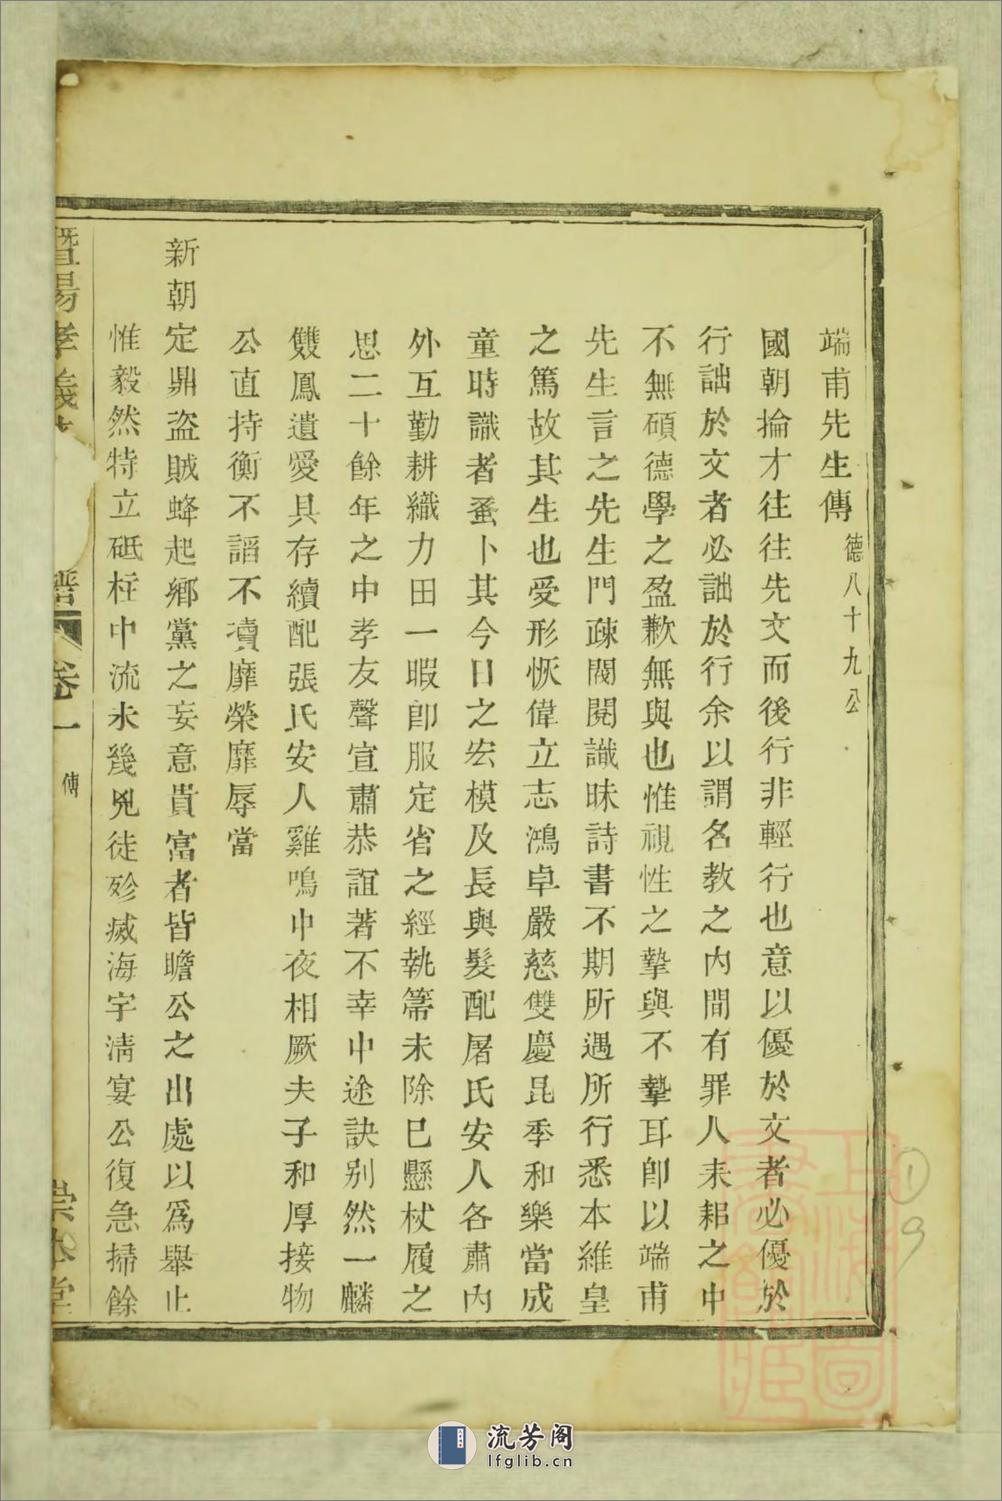 端甫先生傳 德八十九公
國朝掄才往往先文而後行非輕行也意以優於文者必優於
行詘於文者必詘於行余以謂名教之內間有罪人耒耜之中
不無碩德學之盈歉無與也惟視性之摯與不摯耳卽以端甫
先生言之先生門疎閥閱識昧詩書不期所遇所行悉本維皇
之篤故其生也愛形恢偉立志鴻卓嚴慈雙慶昆季和樂當成
童時識者蚤卜其今日之宏模及長與髮配屠氏安人各肅內
外互勤耕織力田一暇卽服定省之經執箒未除巳懸杖履之
思二十餘年之中孝友聲宣肅恭誼著不幸中途訣別然一麟
雙鳳遺愛具存續配張氏安人雞鳴中夜相厥夫子和厚接物
公直持衡不謟不凟靡榮靡辱當
新朝定鼎盗賊蜂起鄉黨之妄意貴富者皆瞻公之出處以爲舉止
惟毅然特立砥柱中流未幾兇徒殄滅海宇淸宴公復急掃餘
暨陽孝義 譜 卷一 傳 崇本堂
上海圖書館藏
① 9
流芳阁
lfglib.cn